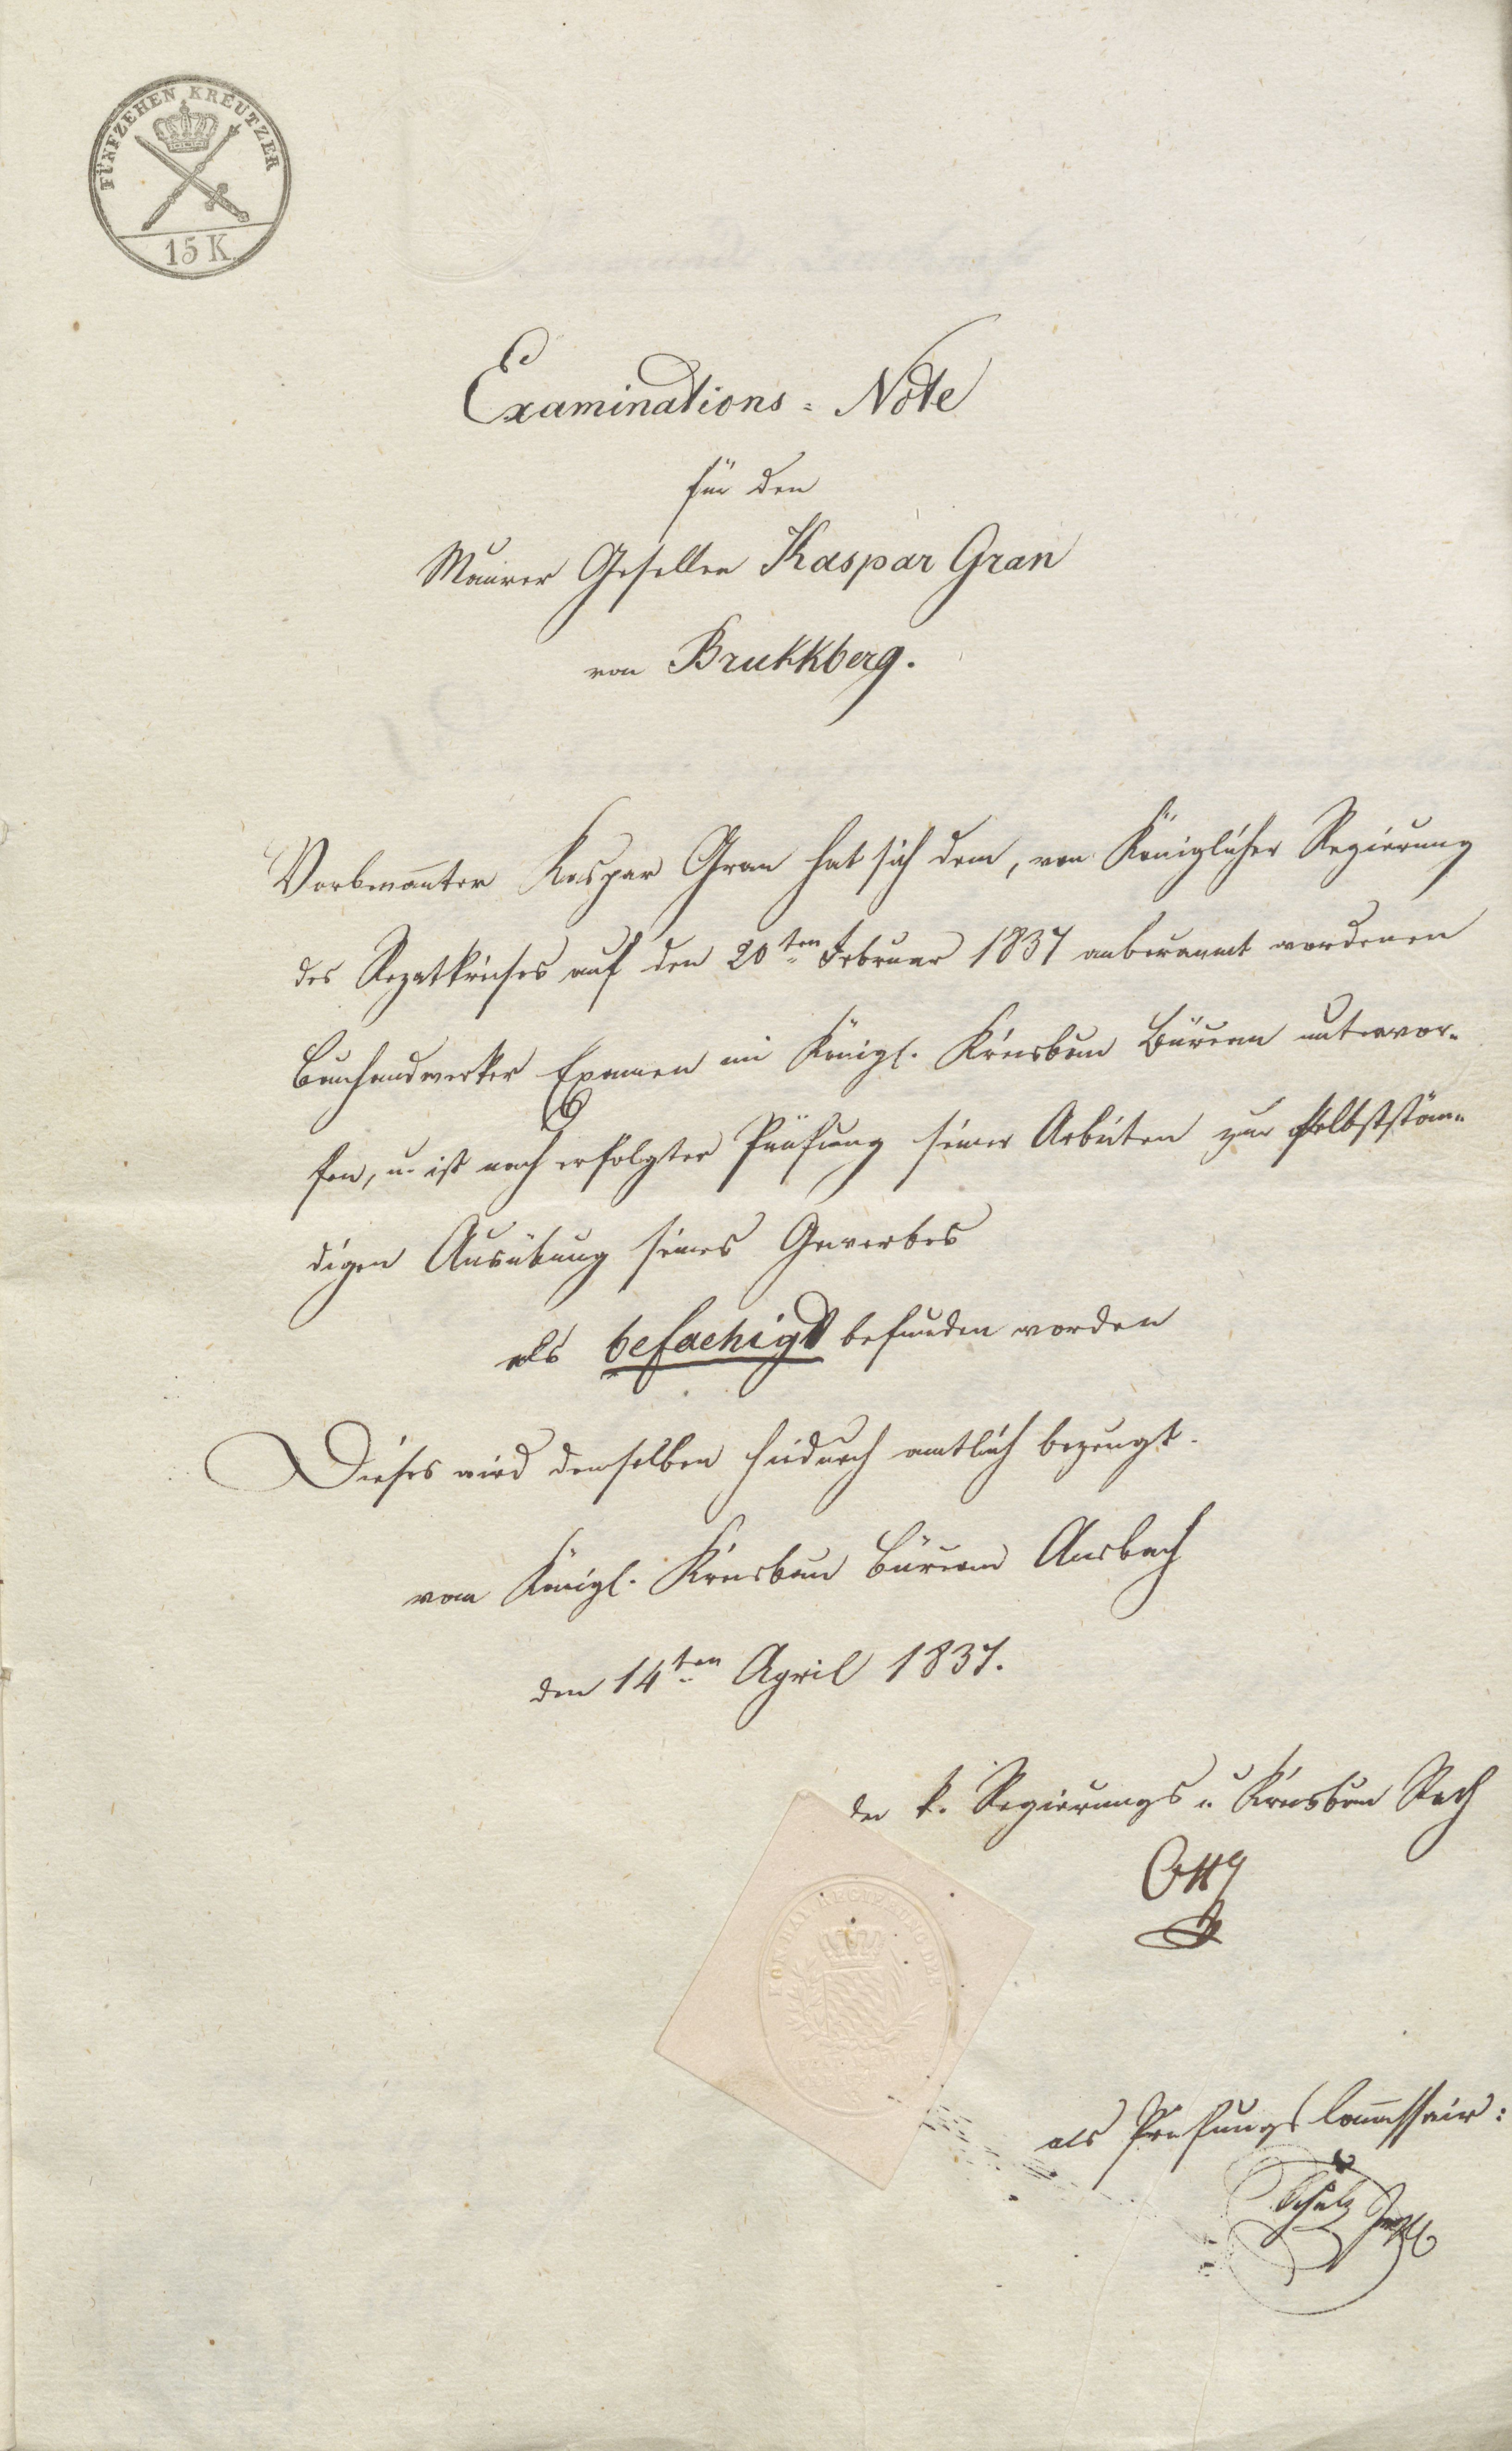 FÜNFZEHEN KREUTZER
15 K
Examinations = Note
für den
Maurer Gesellen Kaspar Gran
von Brukkberg.
Vorbenannter Kaspar Gran hat sich dem, von Königlicher Regierung
des Rezatkreises auf den 20ten Februar 1837 anberaumt wordenen
Bauhandwerker Examen im Königl. Kreisbau Büreau unterwor-
fen, u. ist nach erfolgter Prüfung seiner Arbeiten zur selbststän-
digen Ausübung seines Gewerbes
als befaehigt befunden worden
Dieses wird demselben hiedurch amtlich bezeugt.
vom Königl. Kreisbau Büreau Ansbach
den 14ten April 1837.
der k. Regierungs u Kreisbau Rath
REGIERUNG DES
als Prüfungs Commissair:
Schulz